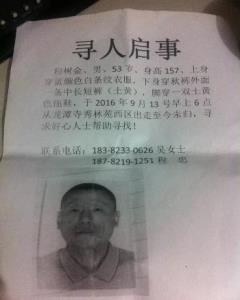 寻人启事
程树金、男、53岁、身高157、上身
穿蓝颜色白条纹衣服，下身穿秋裤外面
一条中长短裤（土黄），脚穿一双土黄
色拖鞋，于2016年9月13号早上6点
从龙潭寺秀林苑西区出走至今未归，寻
求好心人士帮助寻找！
联系电话：18382330626 吴女士
18782191251 程